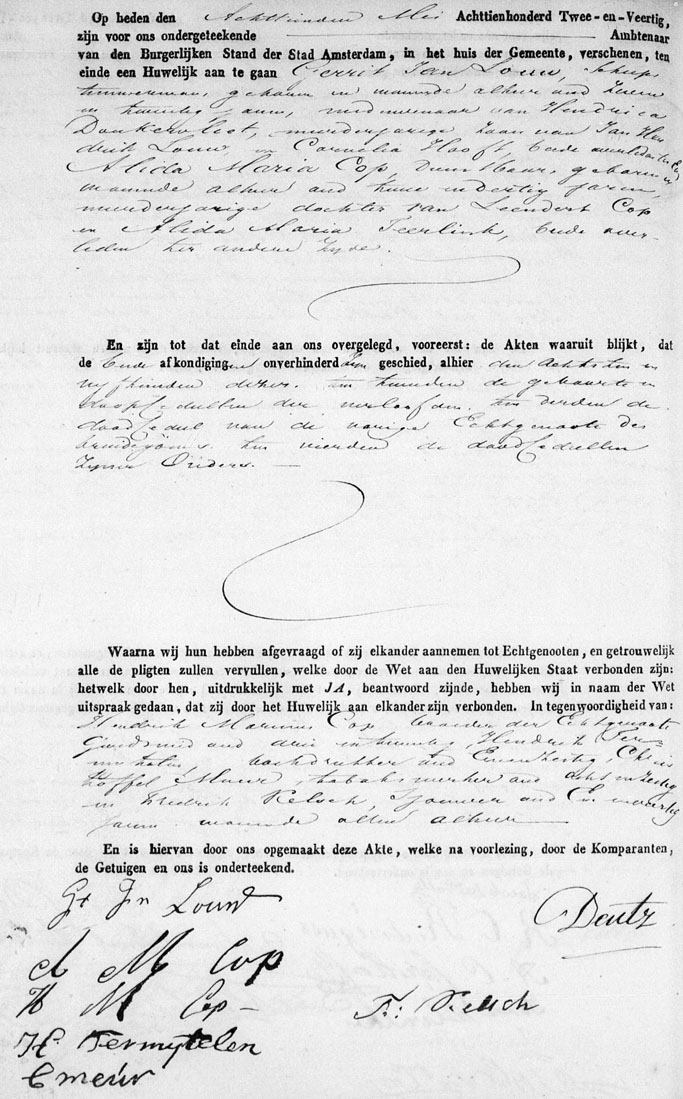 Op heden den Achttienden Mei Achttienhonderd Twee-en-Veertig,
zijn voor ons ondergeteekende Ambtenaar
van den Burgerlijken Stand der Stad Amsterdam, in het huis der Gemeente, verschenen, ten
einde een Huwelijk aan te gaan Gerrit Jan Louw, Scheep
timmerman, geboren en woonende alhier oud Zeven
en twintig jaren, weduwenaar van Hendrica
Donkervloot, meerderjarige Zoon van Jan Hen
drik Louw, en Cornelia Hooft, beide overleden
Alida Maria Cop, geboren en
woonende alhier oud twee en dertig jaren,
meerderjarige dochter van Leendert Cop
en Alida Maria Teerlink, beide over-
leden ter andere Zyde.
En zijn tot dat einde aan ons overgelegd, vooreerst: de Akten waaruit blijkt, dat
de beide afkondigingen onverhinderd zyn geschied, alhier den Achtsten en
vyftienden dezer. ten tweeden de geboorte en
doopcedullen der verloofden. ten derden de
doodcedul van de vorige Echtgenoote des
bruidegoms ten vierden de doodcedullen
zyner Ouders.
Waarna wij hun hebben afgevraagd of zij elkander aannemen tot Echtgenooten, en getrouwelijk
alle de pligten zullen vervullen, welke door de Wet aan den Huwelijken Staat verbonden zijn:
hetwelk door hen, uitdrukkelijk met JA, beantwoord zijnde, hebben wij in naam der Wet
uitspraak gedaan, dat zij door het Huwelijk aan elkander zijn verbonden. In tegenwoordigheid van:
Hendrik Marinus Cop broeder der Echtgenoote
Goudsmid oud drie en twintig, Hendrik Ter-
mytelen, boekdrukker oud Eenenzestig, Chris
toffel Meur, tabakswerker oud acht en zestig
en Fredrik Kelsch, Sjouwer oud Een en veertig
Jaren woonende allen alhier
En is hiervan door ons opgemaakt deze Akte, welke na voorlezing, door de Komparanten,
de Getuigen en ons is onderteekend.
Gt Jn Louw
Deutz
A M Cop
H M Cop
F: Kelsch
H. Termytelen
C meur